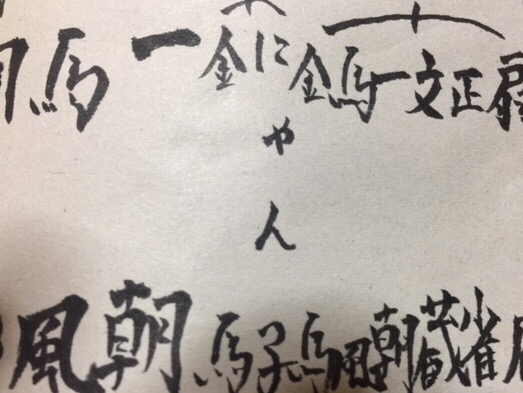 馬一金に金馬一文正
ゃ
ん
風朝馬子馬朝蔵雀